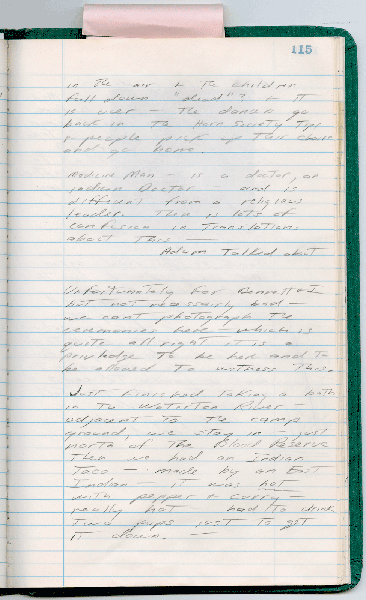 115
in the air & the children
fall down "dead"? & it
is over - the dancers go
back in the Horn Society Tipi
& people pick up their chairs
and go home.
Medicine Man - is a doctor, or
Indian Doctor - and is
different from a religious
leader. There is lots of
confusion in translations
about this -
Adam Talked about
Unfortunately for Bennett & I
but not necessarily bad -
we can't photograph the
ceremonies here - which is
quite all right it is a
privledge to be here and to
be allowed to witness this.
Just finished taking a bath
in the Waterton River -
adjacent to the camp
ground, we stay in just
north of the Blood Reserve
Then we had an Indian
Taco - made by an East
Indian - it was hot
with pepper & curry -
really hot - had to drink
two pops just to get
it down. -